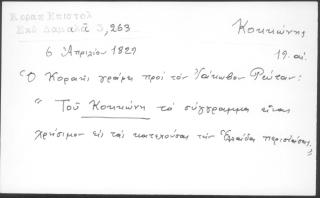 Κοραη Επιστολ
Εκδ Δαμαλᾶ 3,263
Κοκκώνης
6 Ἀπριλίου 1829
19. αἰ.
Ὁ Κοραῆς γράφει πρὸς τὸν Ἰάκωβον Ρώταν:
"Τοῦ Κοκκώνη τὸ σύγγραμμα εἶναι
χρήσιμον εἰς τὰς κατεχούσας τὴν Ἑλλάδα περιστάσεις"